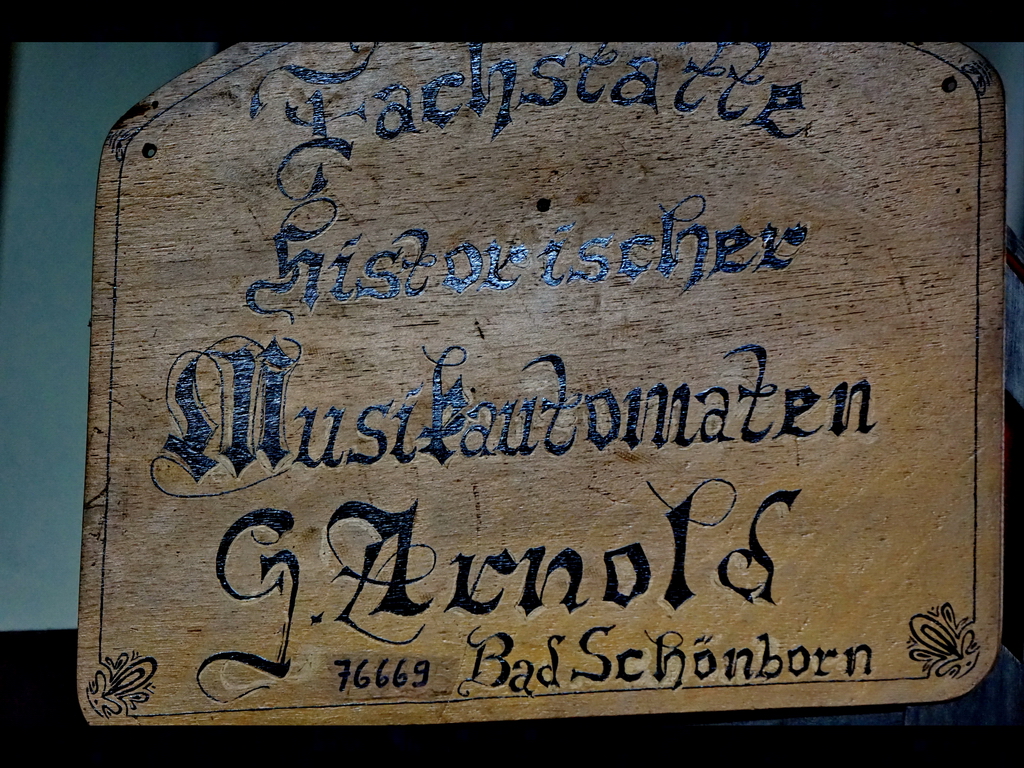 Fachstätte
historischer
Musikautomaten
G. Arnold
76669 Bad Schönborn